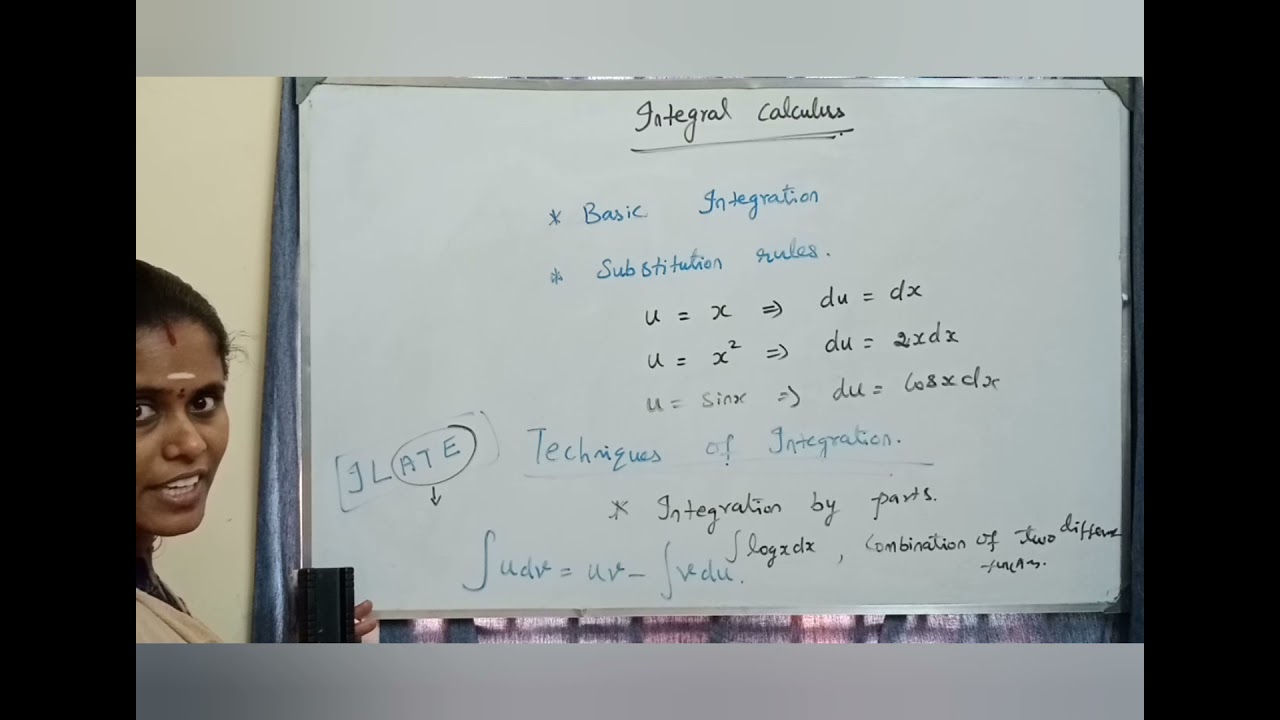 Integral Calculus
* Basic Integration
* Substitution rules.
u = x ⇒ du = dx
u = x² ⇒ du = 2xdx
u = sinx ⇒ du = cosxdx
[ILATE] ↓
Techniques of Integration.
* Integration by parts.
∫logxdx, Combination of two
∫udv = uv - ∫vdu.